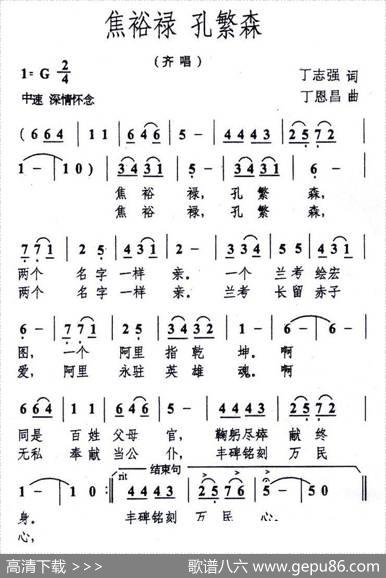 焦裕禄 孔繁森
（齐唱）
1=G 2/4
丁志强 词
中速 深情怀念
丁恩昌 曲
(6 64 | 1 1 | 6 46 | 5 - | 4 4 4 3 | 2 5 7 2 |
1 - | 1 0) | 3 4 3 1 | 5 - | 3 4 3 1 | 6 - |
焦 裕 禄， 孔 繁 森，
焦 裕 禄， 孔 繁 森，
7 7 1 | 2 5 | 4 3 1 | 2 - | 3 3 4 | 5 5 | 4 3 1 |
两个 名字 一样 亲。 一个 兰考 绘宏
两个 名字 一样 亲。 兰考 长留 赤子
6 - | 7 7 1 | 2 5 | 3 4 3 2 | 1 - | 6 - | 6 - |
图， 一个 阿里 指乾 坤。 啊
爱， 阿里 永驻 英雄 魂。 啊
6 64 | 1 1 | 6 46 | 5 - | 4 4 4 3 | 2 5 7 2 |
同是 百姓 父母 官， 鞠躬尽瘁 献终
无私 奉献 当公 仆， 丰碑铭刻 万民
rit 结束句
1 - | 1 0 :| 4 4 4 3 | 2 5 7 2 | 5 - | 5 0 |
身。 丰碑铭刻 万民 心。
心，
高清下载 (>>>)
歌谱八六 www.gepu86.com